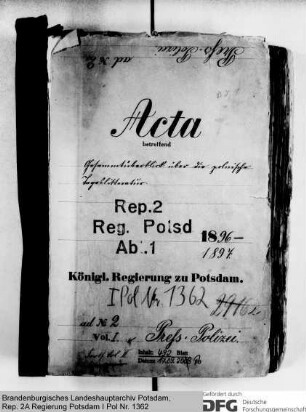 Preß-Polizei
ad № 2
Acta
betreffend
Gesammtüberblick über die polnische
Tageslitteratur
Rep.2
Reg. Potsd
Abt.1
1896–
1897
Königl. Regierung zu Potsdam.
I Pol Nr. 1362
ad № 2
Vol. I
Preß-Polizei
Inhalt: Blatt
Brandenburgisches Landeshauptarchiv Potsdam,
Rep. 2A Regierung Potsdam I Pol Nr. 1362
Gefördert durch:
DFG
Deutsche
Forschungsgemeinschaft